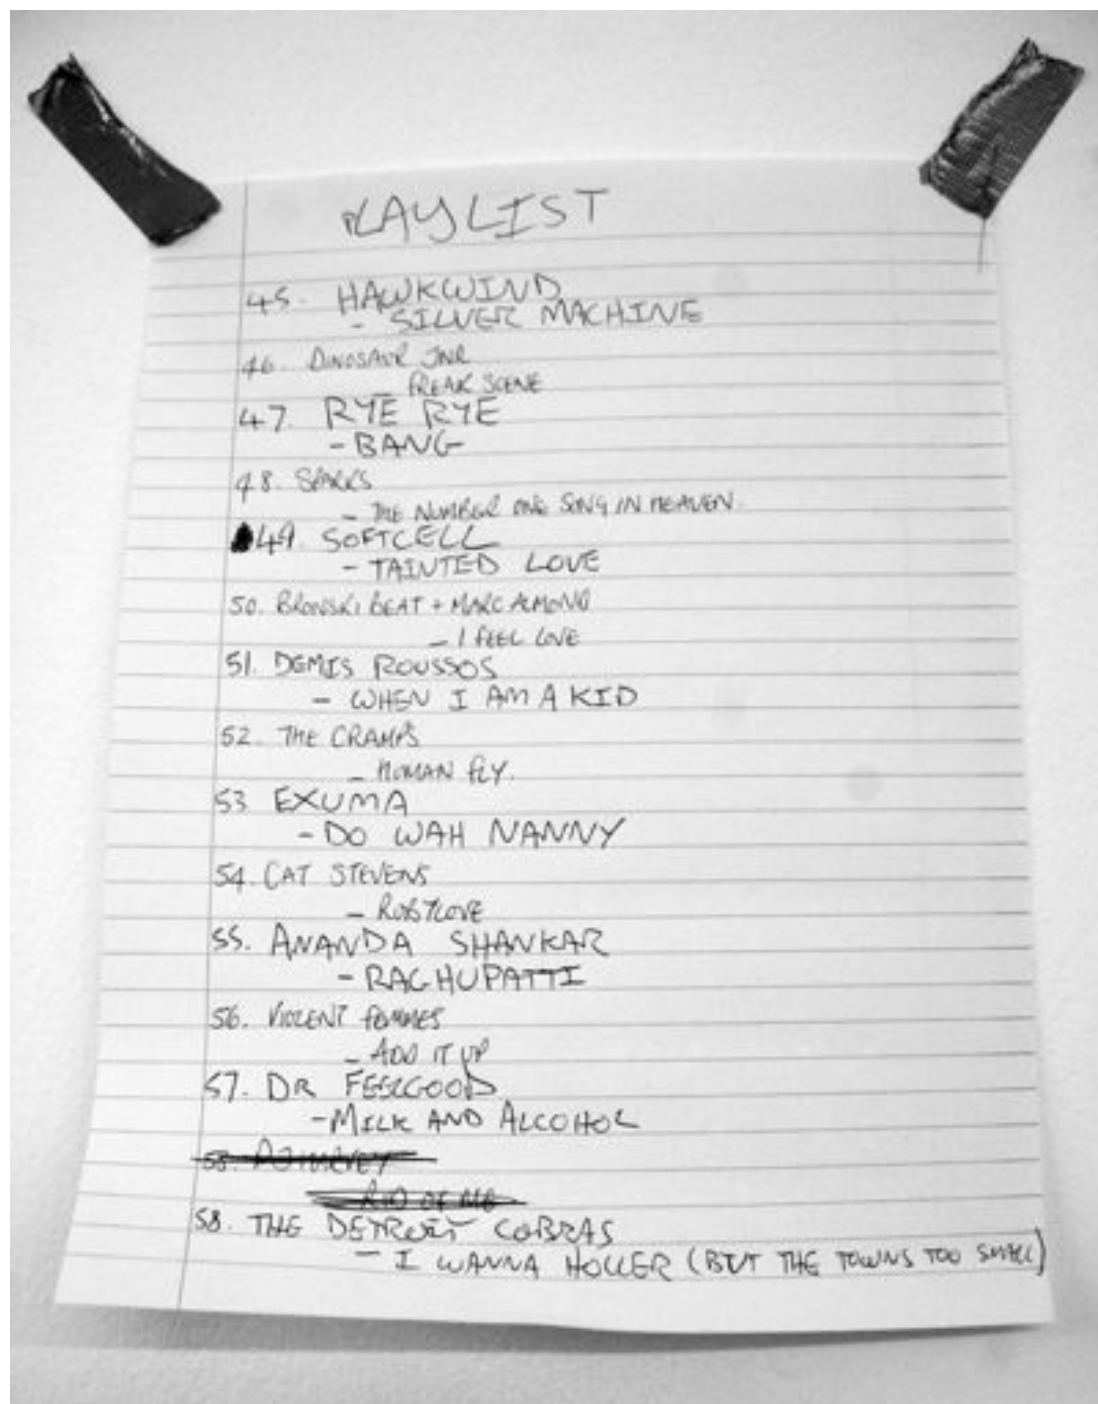 PLAYLIST
45. HAWKWIND
- SILVER MACHINE
46. DINOSAUR JNR
- FREAK SCENE
47. RYE RYE
- BANG
48. SPARKS
- THE NUMBER ONE SONG IN HEAVEN.
49. SOFTCELL
- TAINTED LOVE
50. BRONSKI BEAT + MARC ALMOND
- I FEEL LOVE
51. DEMIS ROUSSOS
- WHEN I AM A KID
52. THE CRAMPS
- HUMAN FLY.
53 EXUMA
- DO WAH NANNY
54. CAT STEVENS
-
55. ANANDA SHANKAR
- RAGHUPATTI
56. VIOLENT FEMMES
- ADD IT UP
57. DR FEELGOOD
- MILK AND ALCOHOL
58. PJ HARVEY
- RID OF ME
58. THE DETROIT COBRAS
- I WANNA HOLLER (BUT THE TOWNS TOO SMALL)